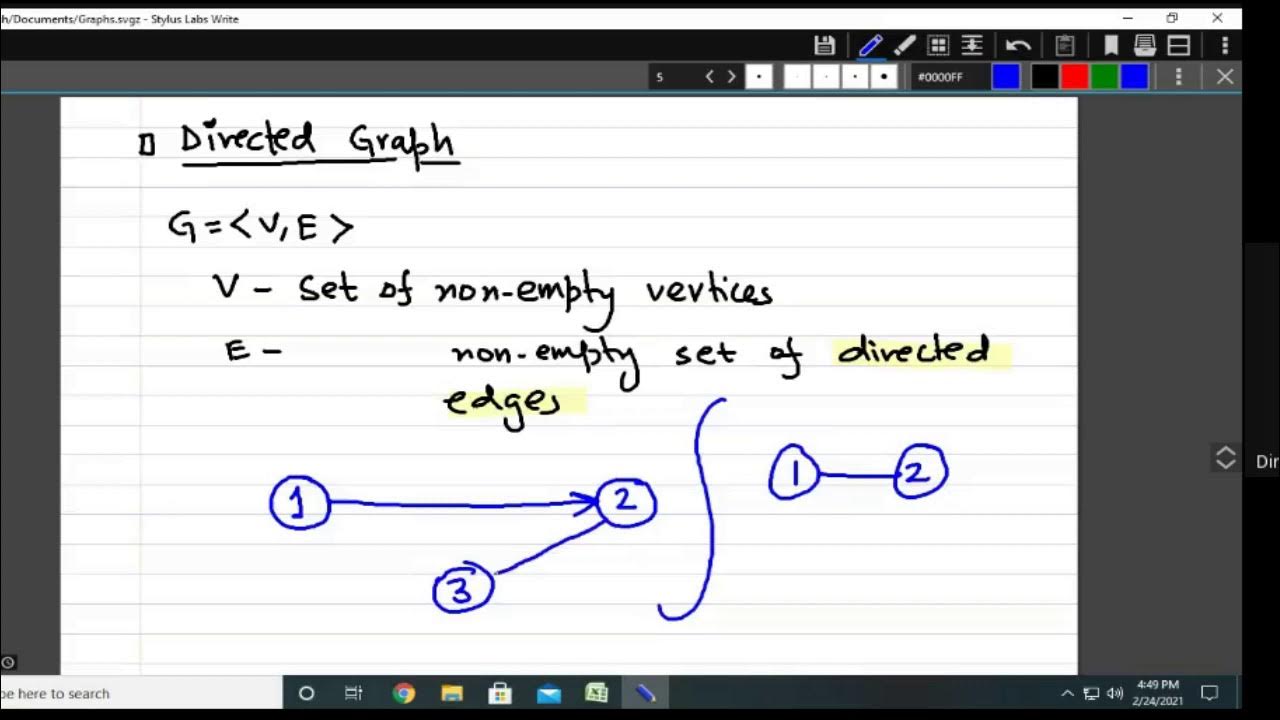 h/Documents/Graphs.svgz - Stylus Labs Write
5
#0000FF
Directed Graph
G = < V, E >
V - Set of non-empty vertices
E - non-empty set of directed
edges
1 2
1 2
3
Dir
pe here to search
4:49 PM
2/24/2021